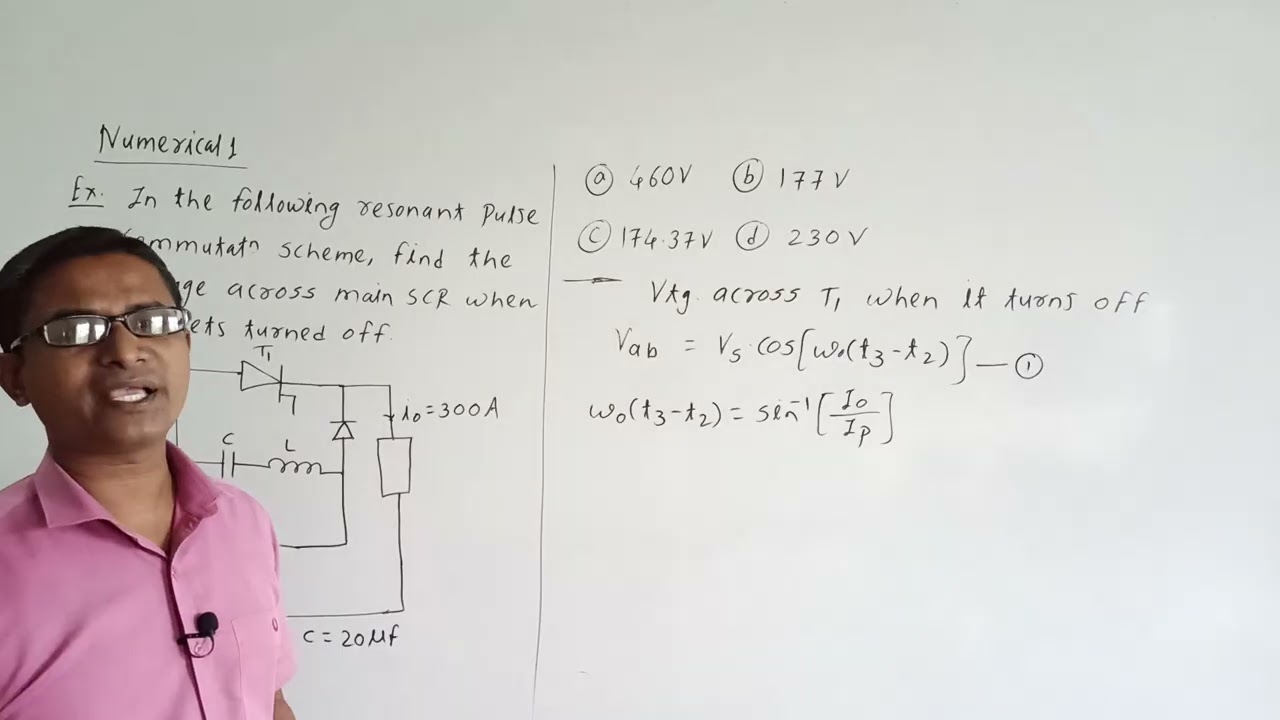 Numerical 1
Ex. In the following resonant Pulse
commutatn scheme, find the
ge across main SCR when
ets turned off.
T1
i0 = 300A
C
L
C = 20 μf
(a) 460V (b) 177 V
(c) 174.37V (d) 230 V
Vtg. across T1 when it turns off
Vab = Vs.cos[ω0(t3-t2)] — (1)
ω0(t3-t2) = sin⁻¹[I0/Ip]